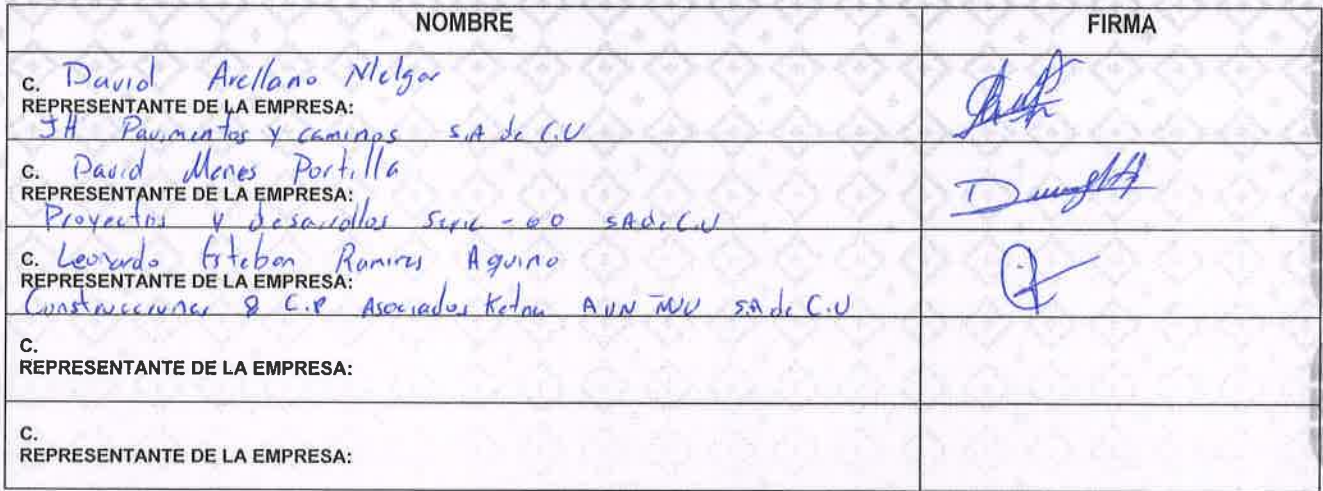 NOMBRE FIRMA
C. David Arellano Melgar
REPRESENTANTE DE LA EMPRESA:
JH Pavimentos y caminos S.A de C.V
C. David Menes Portilla
REPRESENTANTE DE LA EMPRESA:
Proyectos y desarrollos SA de C.V
C. Leonardo Esteban Ramires Aquino
REPRESENTANTE DE LA EMPRESA:
Construcciones & C.P Asociados S.A de C.V
C.
REPRESENTANTE DE LA EMPRESA:
C.
REPRESENTANTE DE LA EMPRESA: